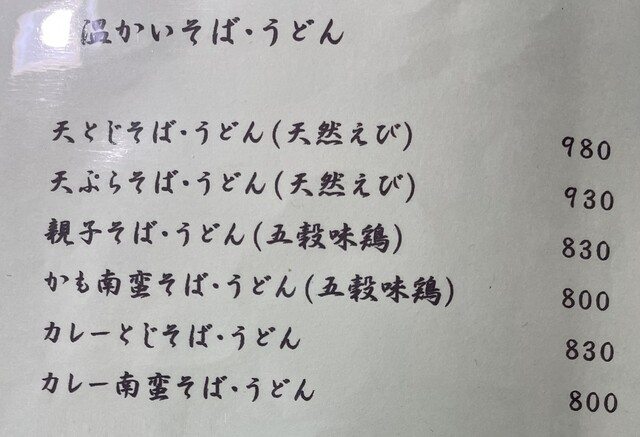 温かいそば・うどん
天とじそば・うどん(天然えび) 980
天ぷらそば・うどん(天然えび) 930
親子そば・うどん(五穀味鶏) 830
かも南蛮そば・うどん(五穀味鶏) 800
カレーとじそば・うどん 830
カレー南蛮そば・うどん 800